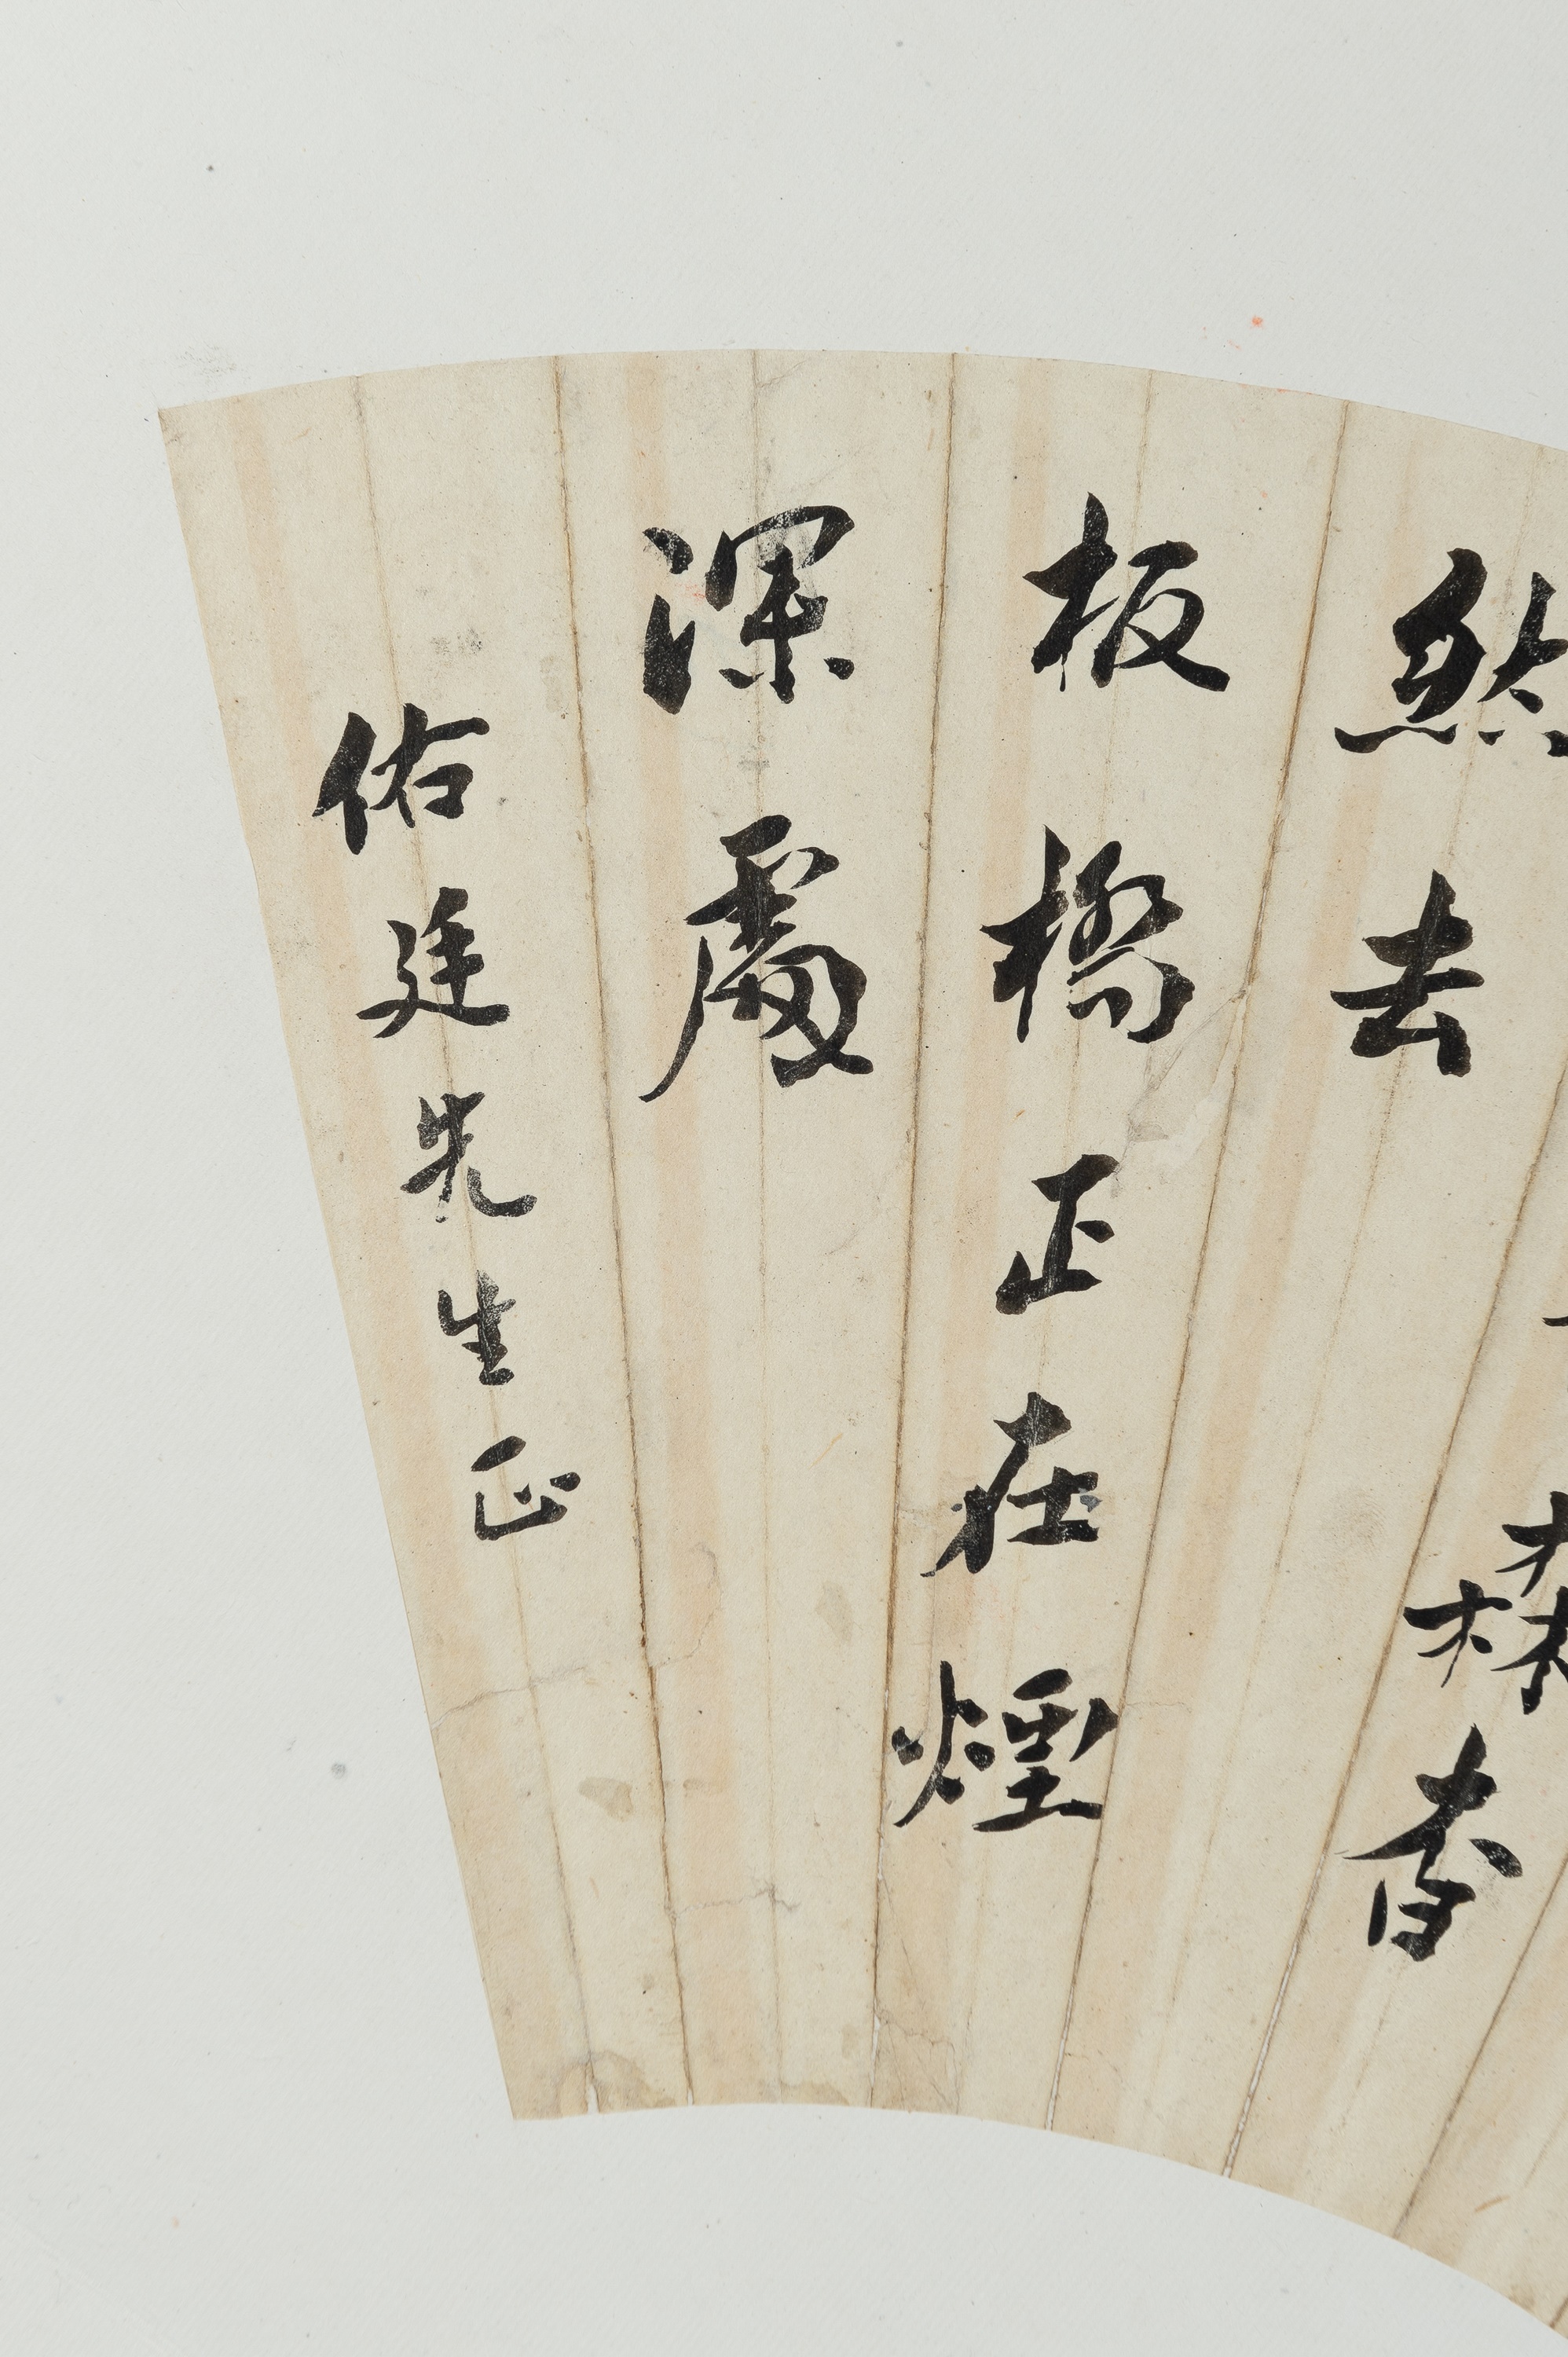 然去
森杳
板橋正在煙
深處
佑廷先生正